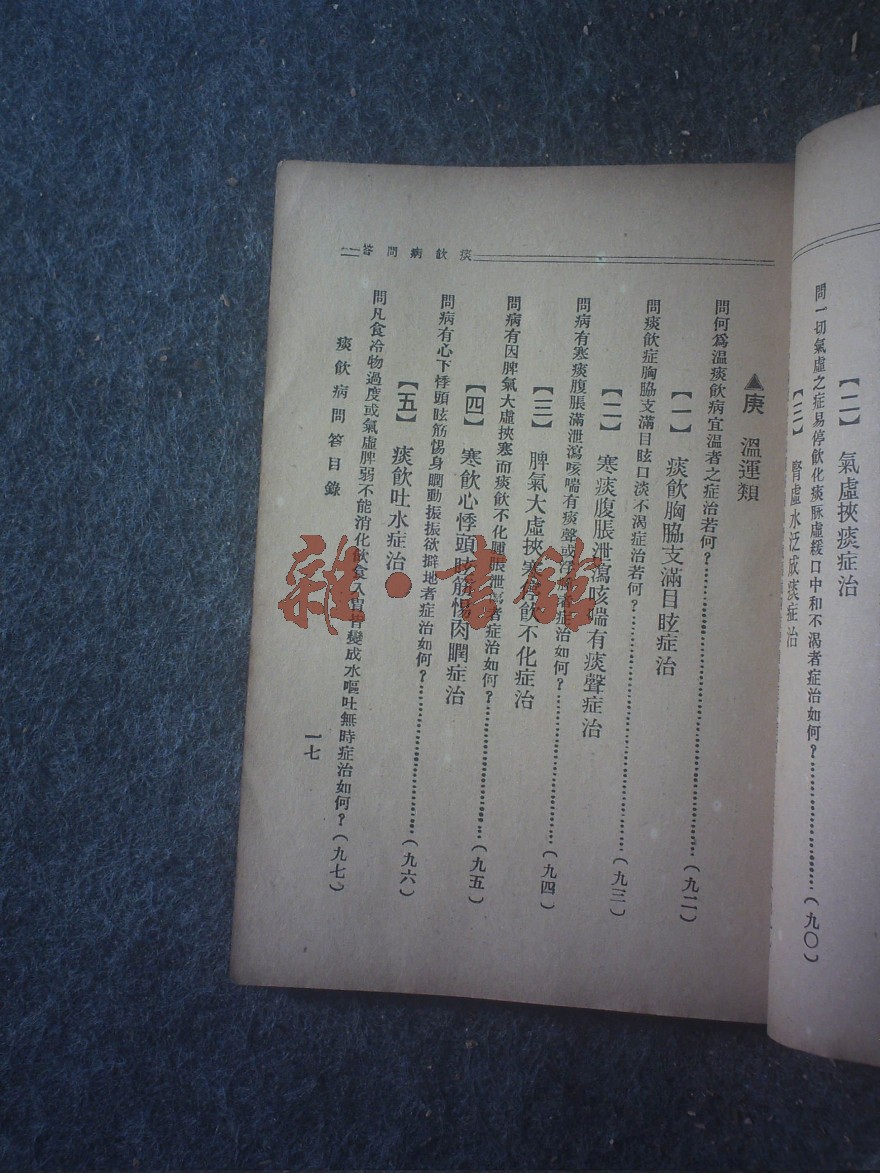 【二】 氣虛挾痰症治
問一切氣虛之症易停飲化痰脉虛緩口中和不渴者症治如何？……(九〇)
【三】 腎虛水泛成痰症治
痰飲病問答
▲庚 溫運類
問何爲溫痰飲病宜溫者之症治若何？……(九二)
【一】 痰飲胸脇支滿目眩症治
問痰飲症胸脇支滿目眩口淡不渴症治若何？……(九三)
【二】 寒痰腹脹泄瀉咳喘有痰聲症治
問病有寒痰腹脹滿泄瀉咳喘有痰聲或浮腫者症治如何？……(九四)
【三】 脾氣大虛挾寒痰飲不化症治
問病有因脾氣大虛挾寒而痰飲不化腫脹泄瀉者症治如何？……(九五)
【四】 寒飲心悸頭眩筋惕肉瞤症治
問病有心下悸頭眩筋惕身瞤動振振欲擗地者症治如何？……(九六)
【五】 痰飲吐水症治
問凡食冷物過度或氣虛脾弱不能消化飲食入胃皆變成水嘔吐無時症治如何？(九七)
痰飲病問答目錄
一七
雜·書館